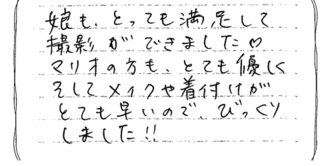 娘も、とっても満足して
撮影ができました♡
マリオの方も、とても優しく
そしてメイクや着付けが
とても早いので、びっくり
しました!!